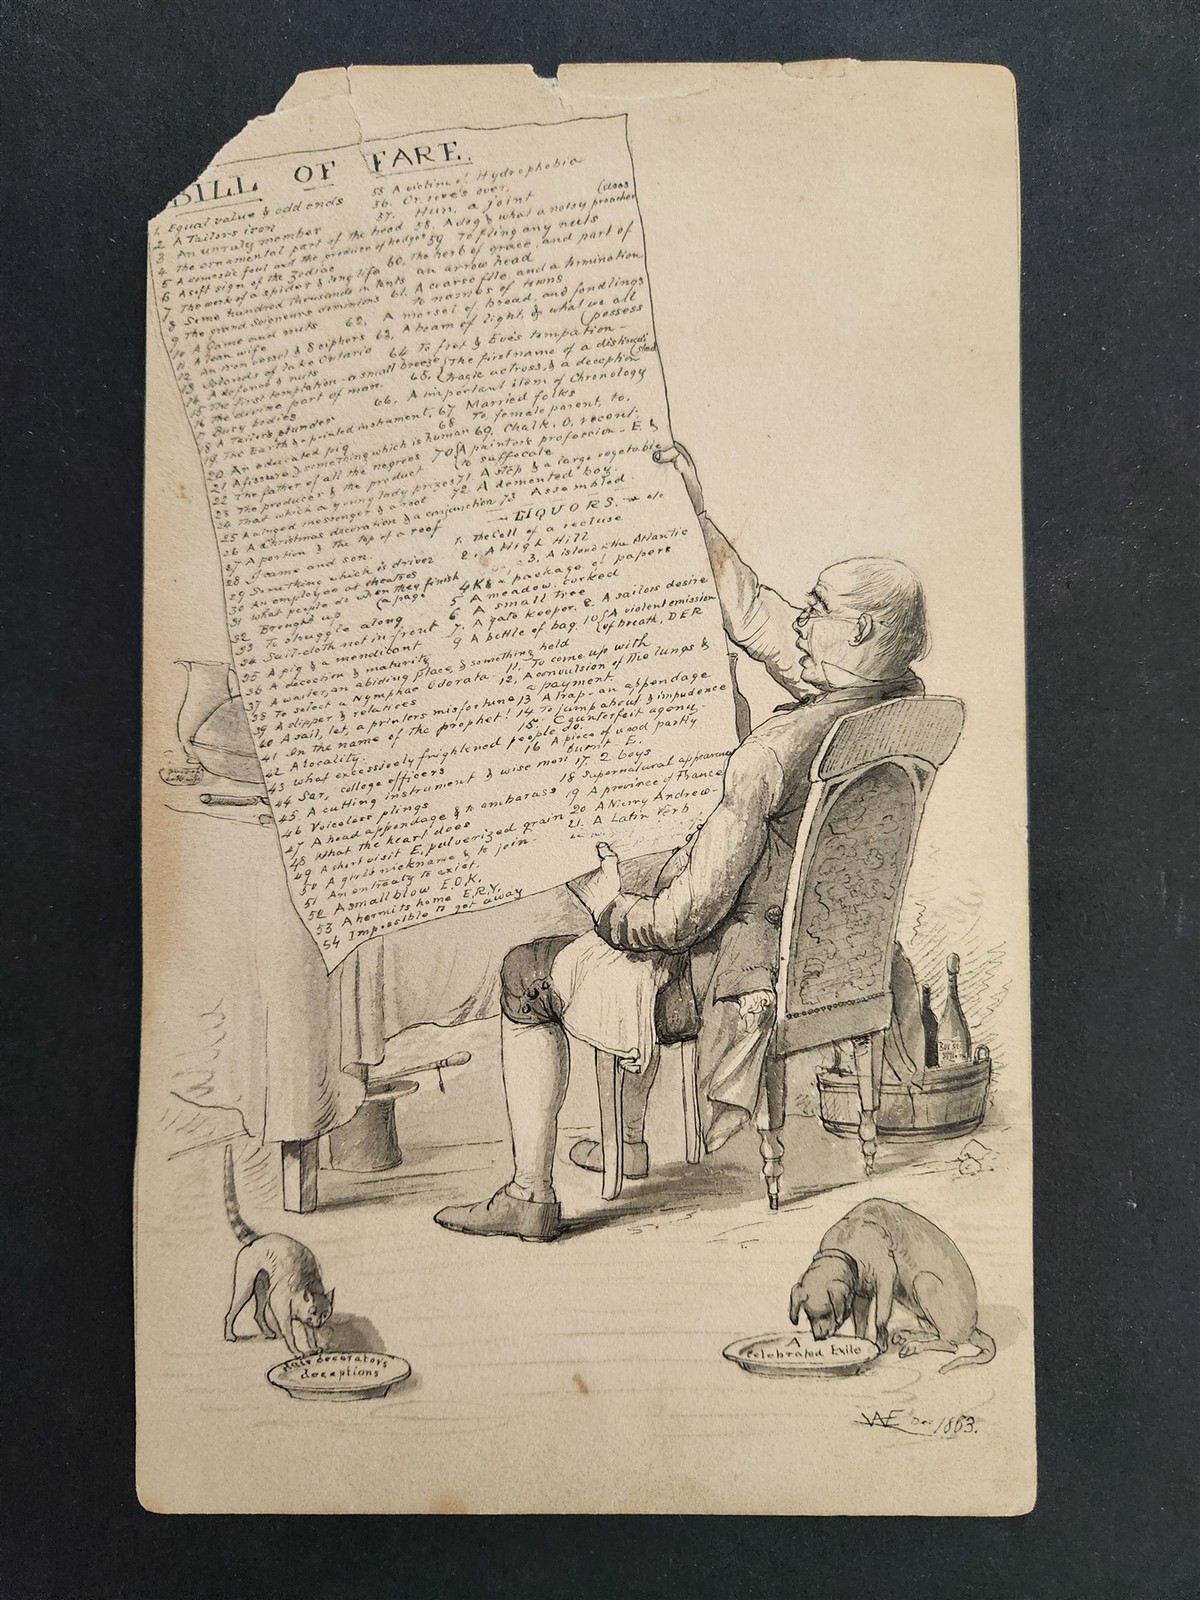 BILL OF FARE.
1. Equal value & odd ends
2 A Tailors iron
3 An unruly member
4 The ornamental part of the head
5 A domestic foul and the produce of hedges
6 A soft sign of the Zodiac
7 The work of a spider & long life
8 Some hundred thousands in tents
9 The grand Seigneurs dominions
10 A Game and nuts
11 A lean wife
12 An iron vessel & 8 ciphers
13 Islands of lake Ontario
14 A defence & nuts
15 The first temptation - a small breeze
16 The divine part of man.
17 Busy bodies
18 A Tailors plunder
19 The Earth & a pointed instrument.
20 An educated pig
21 A fissure & something which is human
22 The father of all the negroes
23 The producer & the product
24 That which a young lady prizes
25 A winged messenger & a root
26 A Christmas decoration & a conjunction
27 A portion & the top of a roof
28 J came and son.
29 Something which is driven
30 An employee at theatres
31 What people do when they finish
(a page
32 Brought up
33 To struggle along
34 Sail-cloth not in front
35 A pig & a mendicant
36 A decoction & maturity
37 A waiter, an abiding place, & something held
38 To select a Nymphae Odorata
39 A slipper & relatives
40 A sail, let, a printers misfortune
41 In the name of the prophet!
42 A locality.
43 What excessively frightened people do.
44 Ser, college officers
45. A cutting instrument & wise men
46 Voiceless plings
47 A head appendage & to embarass
48 What the heart does
49 A short visit E, pulverized grain
50 A girl's nickname & to join.
51 An entreaty to exist.
52 A small blow E.O.K.
53 A hermits home E.R.Y.
54 Impossible to get away
55 A victim of Hydrophobia
56. Cr, rove's over.
57. Hun, a joint
58. A dog & what a noisy preacher
(does
59 To fling any nuts
60. The herb of grace, and part of
an arrow head
61. A coarse file and a termination
to names of towns
62. A morsel of bread, and fondlings
63. A beam of light, & what we all
(possess
64 To fret & Eve's tempation -
65. {The first name of a distingui
(shed
{tragic actress, & a deception
66. A important item of Chronology
67 Married folks
68 To, female parent, to,
69. Chalk, O, recount.
70 {A painters profession - E. &
{to suffocate
71. A step & a large vegetable
72 A demented boy.
73 Assembled.
LIQUORS. etc
1. The Cell of a recluse
2. A High Hill
3. A island in the Atlantic
4 K & a package of papers
5 A meadow, corked
6 A small tree
7. A gate keeper. 8. A sailors desire
9 A bottle of bag. 10 {A violent emission
{of breath, DER
11. To come up with
12. A convulsion of the lungs &
a payment.
13 A trap - an appendage
14 To jump about & impudence
15. Counterfeit agony.
16 A piece of wood partly
burnt E.
17. 2 boys
18 Supernatural appearance
19 A province of France
20 A Merry Andrew-
21. A Latin Verb
Hair decorators
deceptions
A
celebrated Exile
WE Dec 1863.